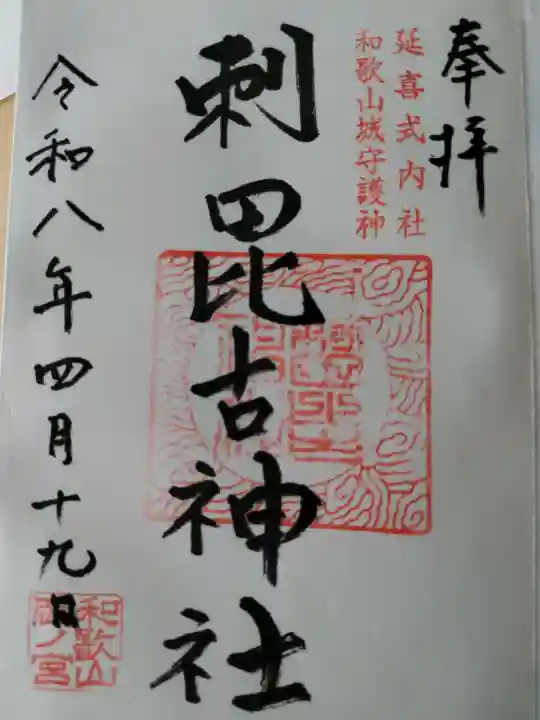 奉拝
延喜式内社
和歌山城守護神
刺毘古神社
令和八年四月十九日
和歌山
岡ノ宮